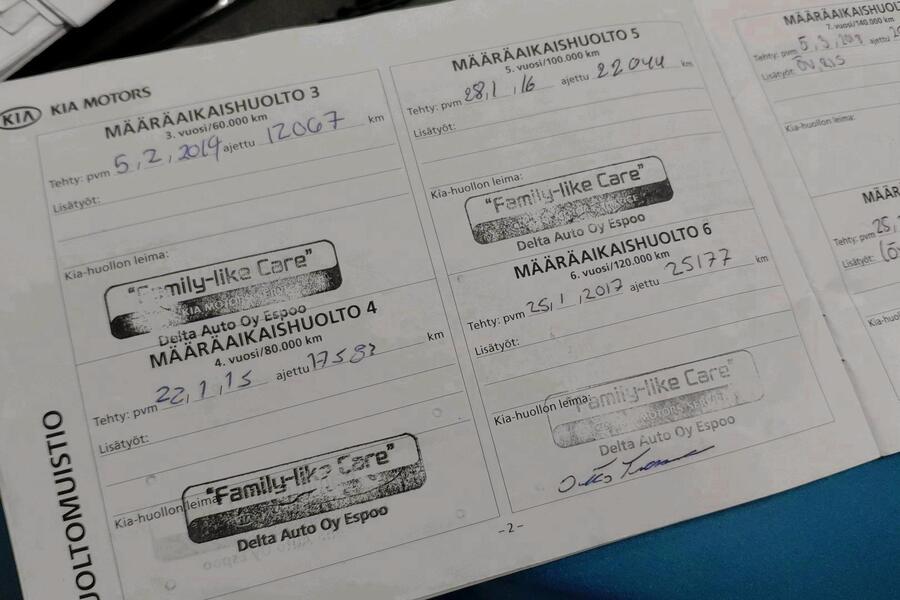 KIA KIA MOTORS
MÄÄRÄAIKAISHUOLTO 3
3. vuosi/60.000 km
Tehty: pvm 5,2,2014 ajettu 12067 km
Lisätyöt:
Kia-huollon leima:
"Family-like Care"
KIA MOTORS SERVICE
Delta Auto Oy Espoo
MÄÄRÄAIKAISHUOLTO 4
4. vuosi/80.000 km
Tehty: pvm 22,1,15 ajettu 17583 km
Lisätyöt:
Kia-huollon leima:
"Family-like Care"
Delta Auto Oy Espoo
MÄÄRÄAIKAISHUOLTO 5
5. vuosi/100.000 km
Tehty: pvm 28,1,16 ajettu 22044 km
Lisätyöt:
Kia-huollon leima:
"Family-like Care"
SERVICE
Delta Auto Oy Espoo
MÄÄRÄAIKAISHUOLTO 6
6. vuosi/120.000 km
Tehty: pvm 25,1,2017 ajettu 25177 km
Lisätyöt:
Kia-huollon leima:
"Family-like Care"
KIA MOTORS SERVICE
Delta Auto Oy Espoo
-2-
UOLTOMUISTIO
MÄÄRÄAIKAISHUOLT
7. vuosi/140.000 km
Tehty: pvm ajettu
Lisätyöt:
Kia-huollon leima:
MÄÄRÄ
Tehty: pvm 25,
Lisätyöt:
Kia-huol